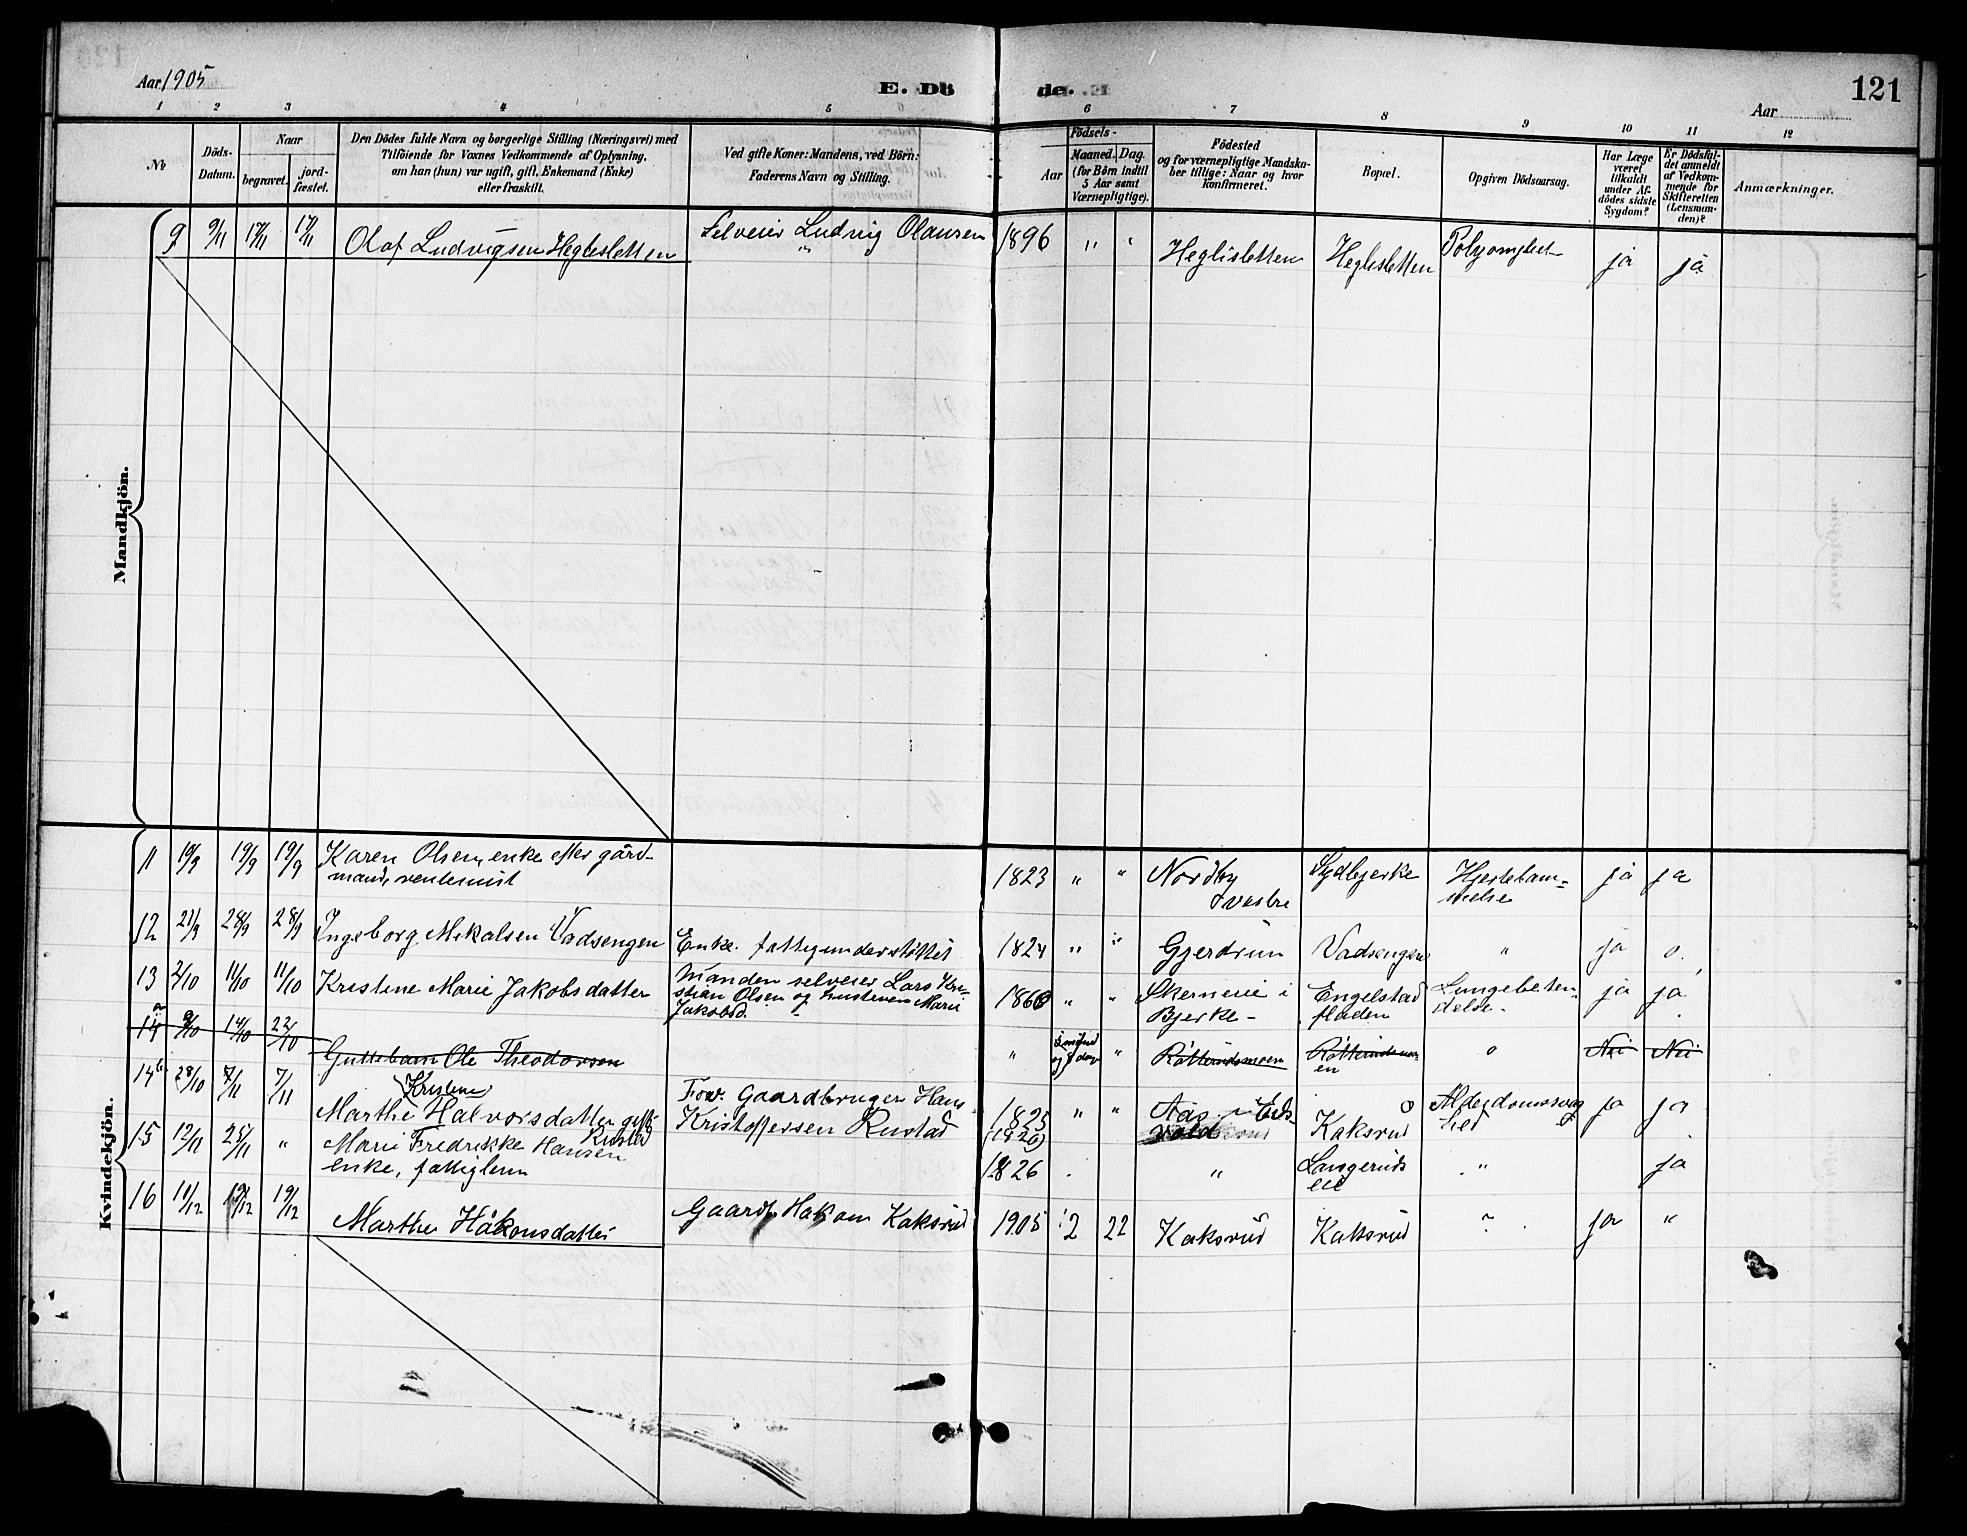 Aar 1905
E. Döde.
Aar
121
1 2 3 4 5 6 7 8 9 10 11 12
No
Döds-Datum.
Naar
begravet.
jord-fæstet.
Den Dödes fulde Navn og borgerlige Stilling (Næringsvei) med
Tilföiende for Voxnes Vedkommende af Oplysning,
om han (hun) var ugift, gift, Enkemand (Enke)
eller fraskilt.
Ved gifte Koner: Mandens, ved Börn:
Faderens Navn og Stilling.
Födsels-
Aar
Maaned. Dag.
(for Börn indtil
5 Aar samt
Værnepligtige).
Födested
og for værnepligtige Mandska-
ber tillige: Naar og hvor
konfirmeret.
Bopæl.
Opgiven Dödsaarsag.
Har Læge
været
tilkaldt
under Af-
dödes sidste
Sygdom?
Er Dödsfal-
det anmeldt
af Vedkom-
mende for
Skifteretten
(Lensman-
den)?
Anmærkninger.
Mandkjön.
9 9/11 17/11 17/11 Olaf Ludvigsen Heglisletten Selveier Ludvig Olausen 1896 " " Heglisletten Heglisletten ja ja
Kvindekjön.
11 19/9 19/9 Karen Olsen, enke efter gård- 1823 " " Nordby Sydbjerke Hjertelam- ja ja
mand, Vestre melse
12 21/9 28/9 28/9 Ingeborg Mikalsen Vadsengen Enke. fattigunderstöttet 1824 " " Gjerdrum Vadsengen " ja o
13 2/10 11/10 11/10 Kristine Marie Jakobsdatter Manden selveier Lars Kri- " " i Engelstad Lungebeten- ja ja
stian Olsen og hustruen Marie Bjerke- fladen delse.
Jakobsd.
14 14/10 22/10 Guttebarn Ole Theodorsen " " Nei Nei
14b 28/10 7/11 7/11 Kristine
Marthe Halvorsdatter gift Fov. Gaardbruger Hans 1825 " " Aas i Eids- Kaksrud ja ja
Rustad Kristoffersen Rustad vold
15 12/11 25/11 " Marie Fredrikke Hansen
enke, fattiglem 1826 " Langeruds " ja
eie
16 11/12 19/12 19/12 Marthe Håkonsdatter Gaardb. Hakon Kaksrud 1905 2 22 Kaksrud Kaksrud ja "